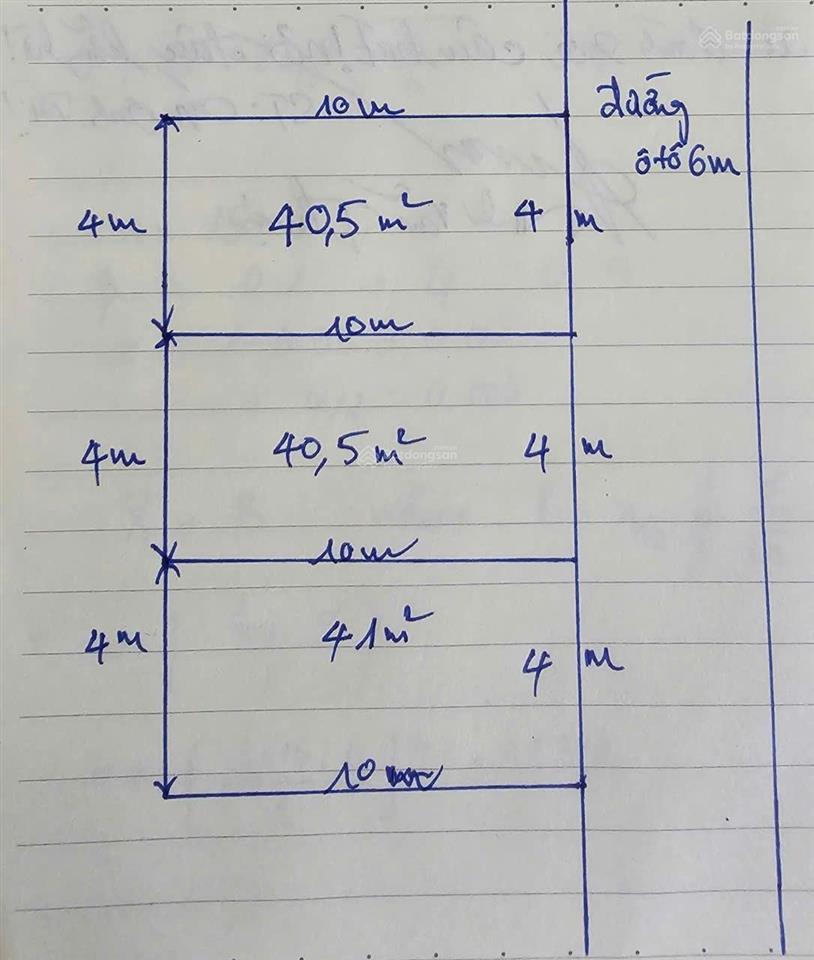 Batdongsan
10m
đường
ô tô 6m
4m
40,5 m²
4 m
10m
4m
40,5 m²
4 m
Batdongsan
10m
4m
41m²
4 m
10m